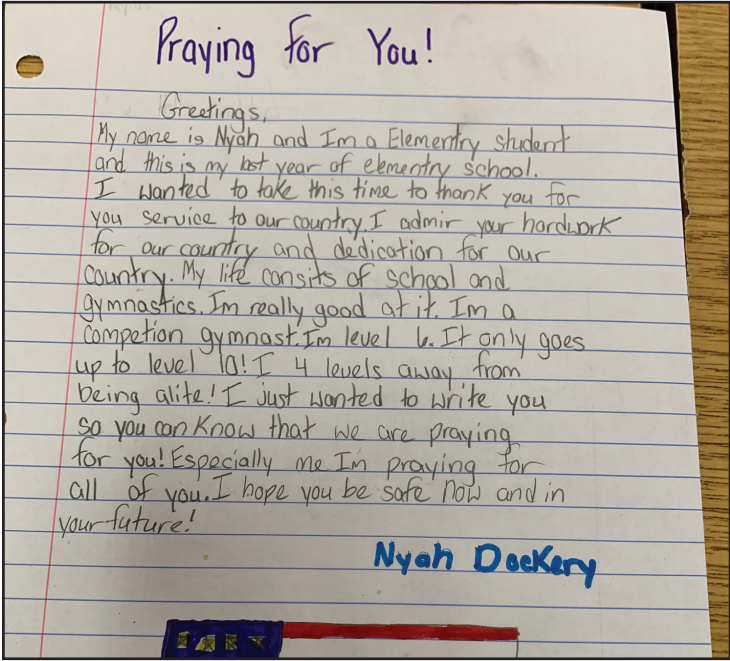 Praying for You!
Greetings,
My name is Nyah and Im a Elementry student
and this is my last year of elementry school.
I wanted to take this time to thank you for
you service to our country. I admir your hardwork
for our country and dedication for our
country. My life consits of school and
gymnastics. Im really good at it. Im a
competion gymnast. Im level 6. It only goes
up to level 10! I 4 levels away from
being alite! I just wanted to write you
so you can know that we are praying
for you! Especially me Im praying for
all of you. I hope you be safe now and in
your future!
Nyah Dockery